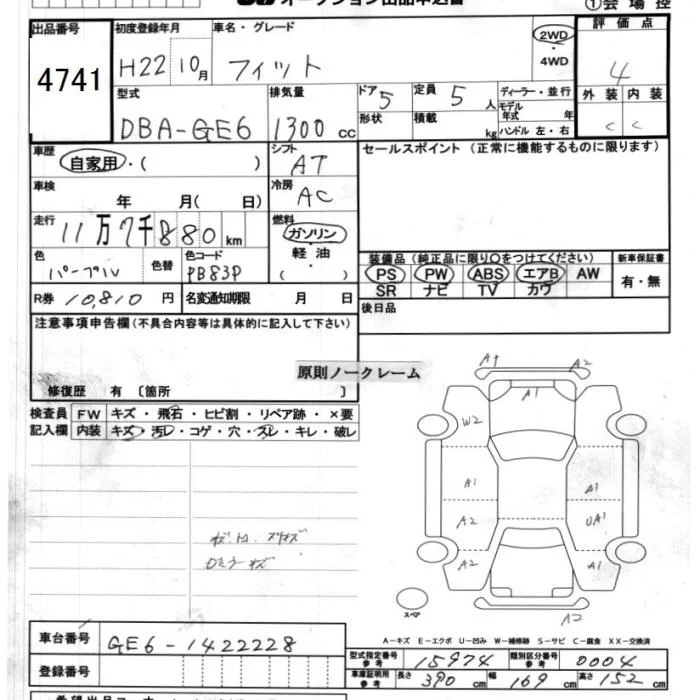 オークション出品申込書
①会場控
出品番号 4741
初度登録年月 H22 10月
車名・グレード フィット
2WD ・ 4WD
評価点 4
外装 内装
C C
型式 DBA-GE6
排気量 1300 cc
ドア 5
形状
定員 5 人
積載 kg
ディーラー・並行
モデル年式 年
ハンドル 左・右
車歴 自家用・( )
シフト AT
セールスポイント (正常に機能するものに限ります)
車検 年 月( 日)
冷房 AC
走行 11万7千880km
燃料 ガソリン・軽油・
色 パープル
色替
色コード PB83P
装備品(純正品に限り○をつけてください)
新車保証書
PS PW ABS エアB AW
有・無
SR ナビ TV カワ
R券 10,810 円
名変通知期限 月 日
後日品
注意事項申告欄(不具合内容等は具体的に記入して下さい)
原則ノークレーム
修復歴 有 〔箇所 〕
検査員 FW キズ・飛石・ヒビ割・リペア跡・×要
記入欄 内装 キズ・汚レ・コゲ・穴・スレ・キレ・破レ
A1 A2
A1
W2
A1 A1
A2 UA1
A2 A2
スペア
A2
A-キズ E-エクボ U-凹み W-補修跡 S-サビ C-腐食 XX-交換済
車台番号 GE6-1422228
登録番号
型式指定番号 参考 15974
類別区分番号 参考 0004
車庫証明用 参考 長さ 390 cm 幅 169 cm 高さ 152 cm